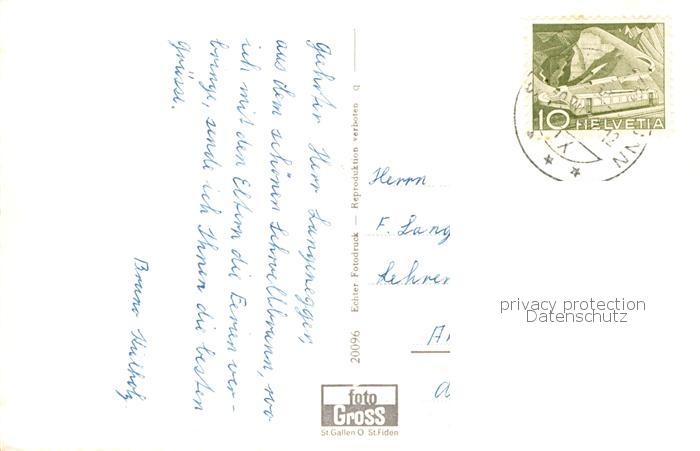 Geehrter Herr Langenegger,
aus dem schönen Schwellbrunn, wo
ich mit den Eltern die Ferien ver-
bringe, sende ich Ihnen die besten
Grüsse.
Bruno
20096 Echter Fotodruck — Reproduktion verboten q
foto
Gross
St.Gallen O St.Fiden
Herrn
F. Lang
Lehrer
10 HELVETIA
privacy protection
Datenschutz